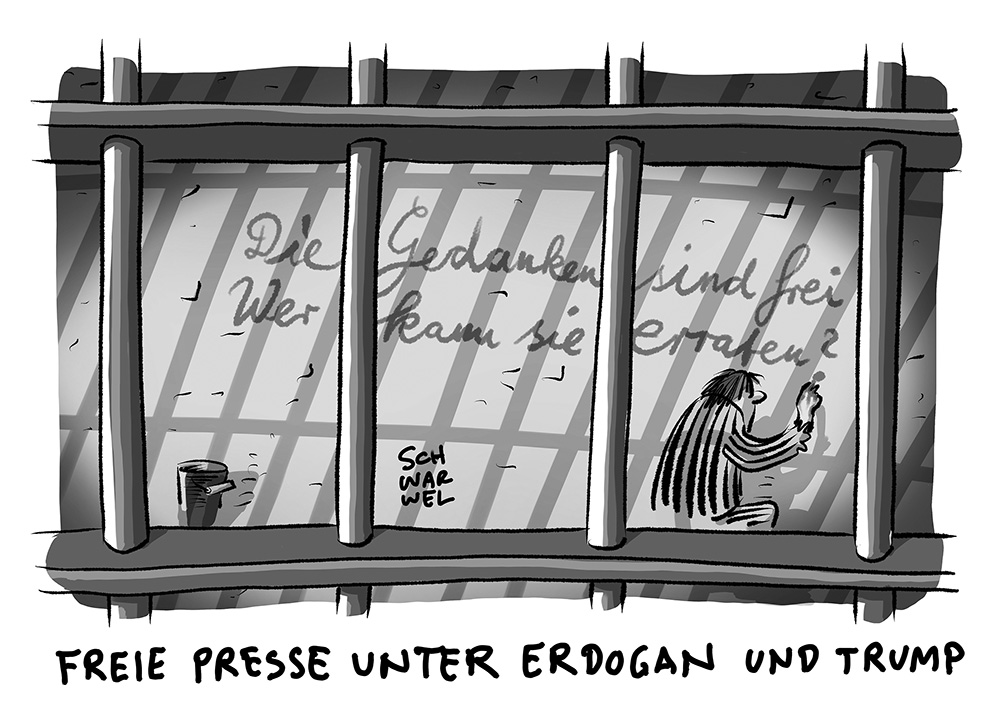 Die Gedanken sind frei
Wer kann sie erraten?
SCH
WAR
WEL
FREIE PRESSE UNTER ERDOGAN UND TRUMP